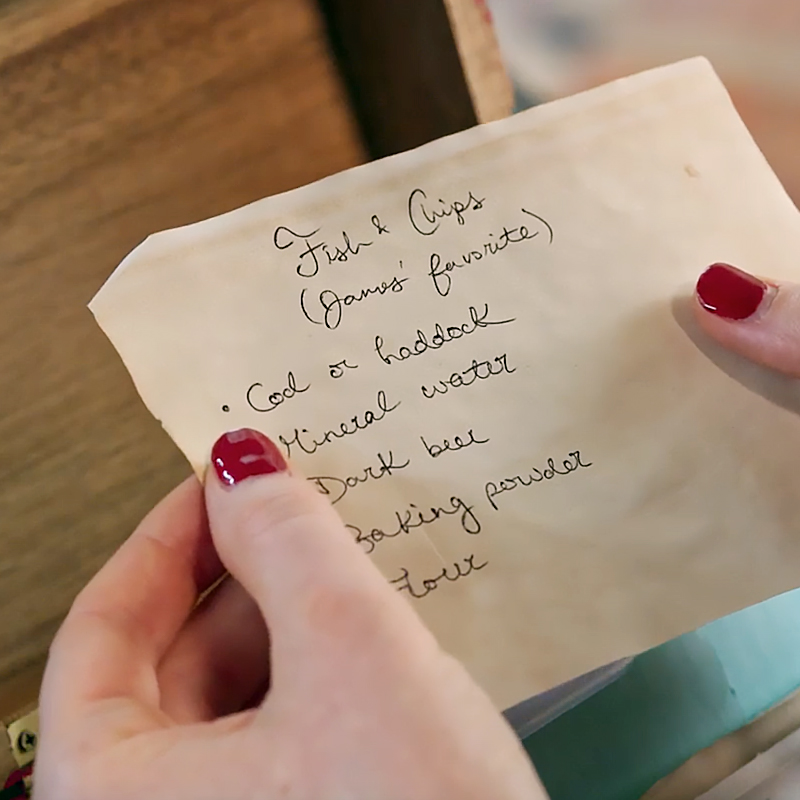 Fish & Chips
(James' favorite)
• Cod or haddock
Mineral water
Dark beer
Baking powder
Flour